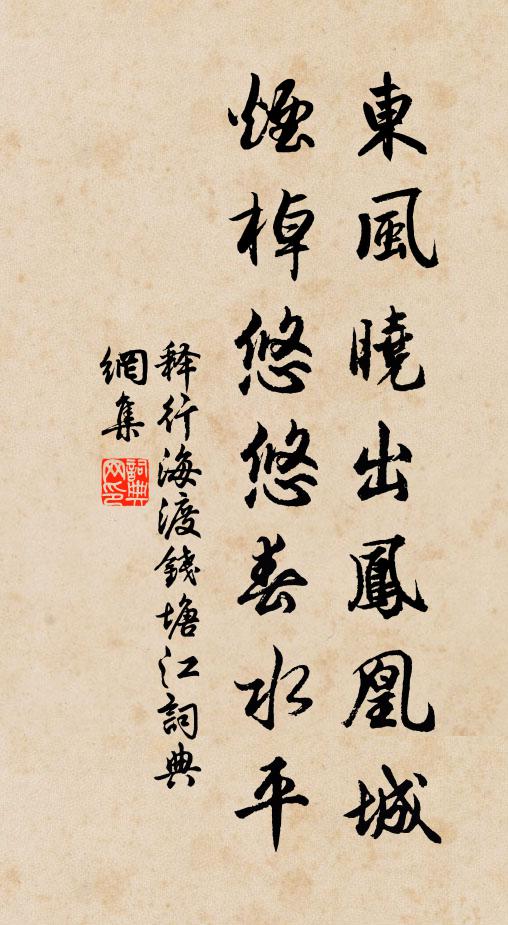 東風曉出鳳凰城
煙棹悠悠春水平
釋行海渡錢塘江詞典
網集
詞典
网印